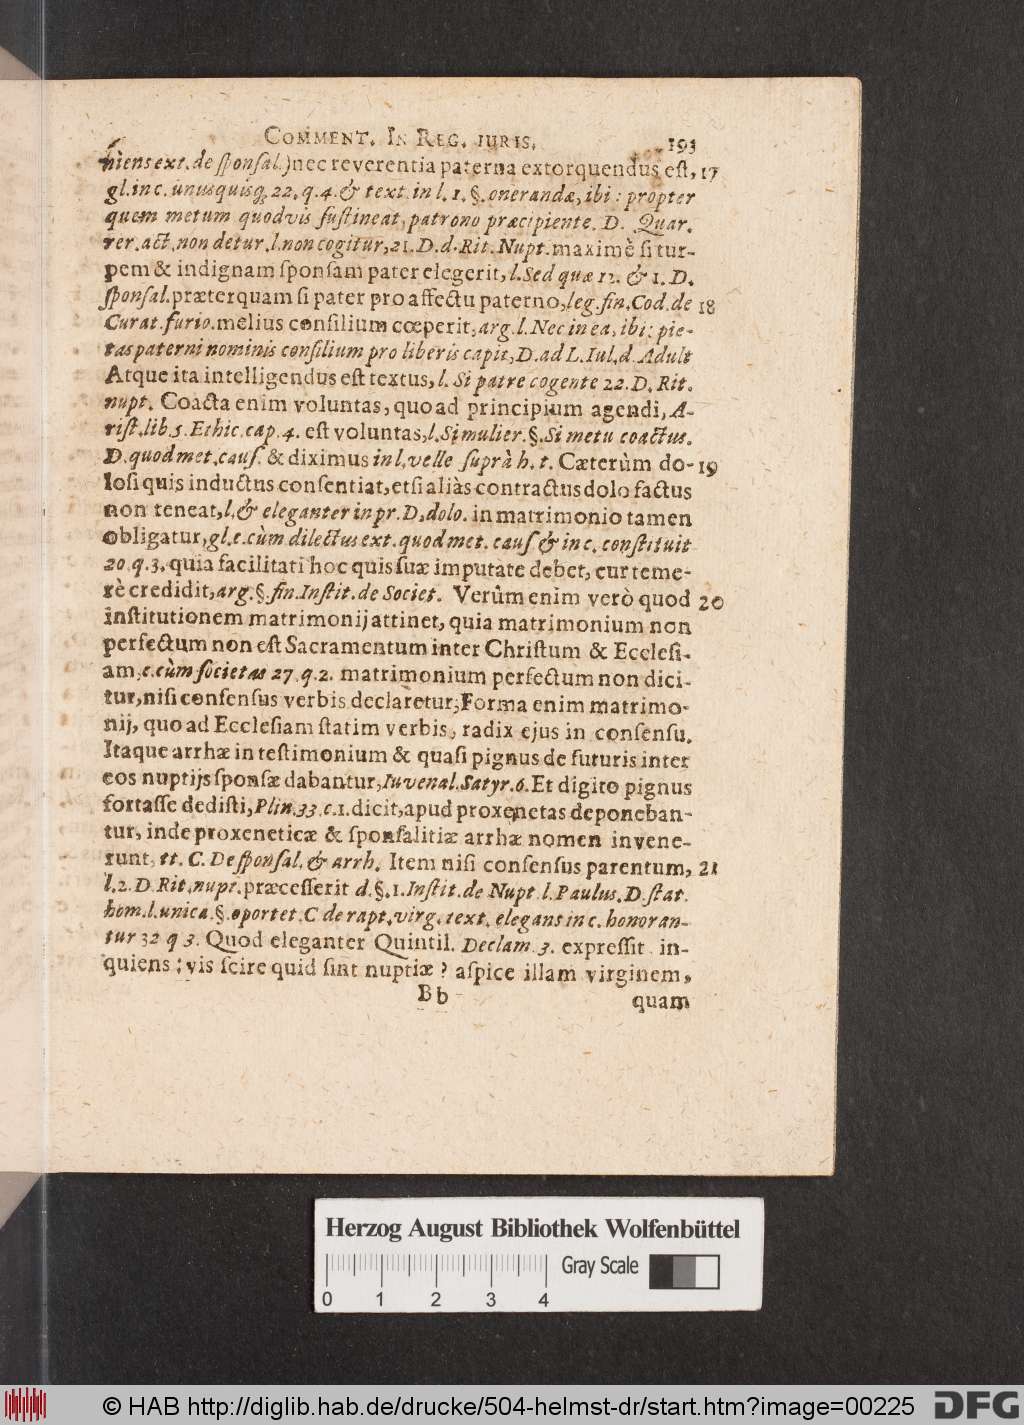 COMMENT. IN REG. IURIS. 193
niens ext. de sponsal.) nec reverentia paterna extorquendus est, 17
gl. in c. unusquisq; 22. q. 4. & text. in l. 1. §. onerandæ, ibi: propter
quem metum quodvis sustineat, patrono præcipiente. D. Quar.
rer. act. non detur. l. non cogitur, 21. D. d. Rit. Nupt. maximè si tur-
pem & indignam sponsam pater elegerit, l. Sed quæ 12. & 1. D.
sponsal. præterquam si pater pro affectu paterno, leg. fin. Cod. de 18
Curat. furio. melius consilium cœperit, arg. l. Nec in ea, ibi: pie-
tas paterni nominis consilium pro liberis capit, D. ad L. Iul. d. Adult
Atque ita intelligendus est textus, l. Si patre cogente 22. D. Rit.
nupt. Coacta enim voluntas, quo ad principium agendi, A-
rist. lib. 5. Ethic. cap. 4. est voluntas, l. Si mulier. §. Si metu coactus.
D. quod met. caus. & diximus in l. velle suprà h. t. Cæterùm do- 19
losi quis inductus consentiat, etsi aliàs contractus dolo factus
non teneat, l. & eleganter in pr. D. dolo. in matrimonio tamen
obligatur, gl. e. cùm dilectus ext. quod met. caus. & in c. constituit
20. q. 3. quia facilitati hoc quis suæ imputate debet, cur teme-
rè credidit, arg. §. fin. Instit. de Societ. Verùm enim verò quod 20
institutionem matrimonij attinet, quia matrimonium non
perfectum non est Sacramentum inter Christum & Ecclesi-
am, c. cùm societas 27. q. 2. matrimonium perfectum non dici-
tur, nisi consensus verbis declaretur; Forma enim matrimo-
nij, quo ad Ecclesiam statim verbis, radix ejus in consensu.
Itaque arrhæ in testimonium & quasi pignus de futuris inter
eos nuptijs sponsæ dabantur, Iuvenal. Satyr. 6. Et digito pignus
fortasse dedisti, Plin. 33. c. 1. dicit, apud proxenetas deponeban-
tur, inde proxeneticæ & sponsalitiæ arrhæ nomen invene-
runt, tt. C. De sponsal. & arrh. Item nisi consensus parentum, 21
l. 2. D. Rit. nupt. præcesserit d. §. 1. Instit. de Nupt. l. Paulus. D. stat.
hom. l. unica. §. oportet. C de rapt. virg. text. elegans in c. honoran-
tur 32 q 3. Quod eleganter Quintil. Declam. 3. expressit inquiens: vis scire quid sint nuptiæ? aspice illam virginem,
Bb quam
Herzog August Bibliothek Wolfenbüttel
Gray Scale
0 1 2 3 4
© HAB http://diglib.hab.de/drucke/504-helmst-dr/start.htm?image=00225
DFG